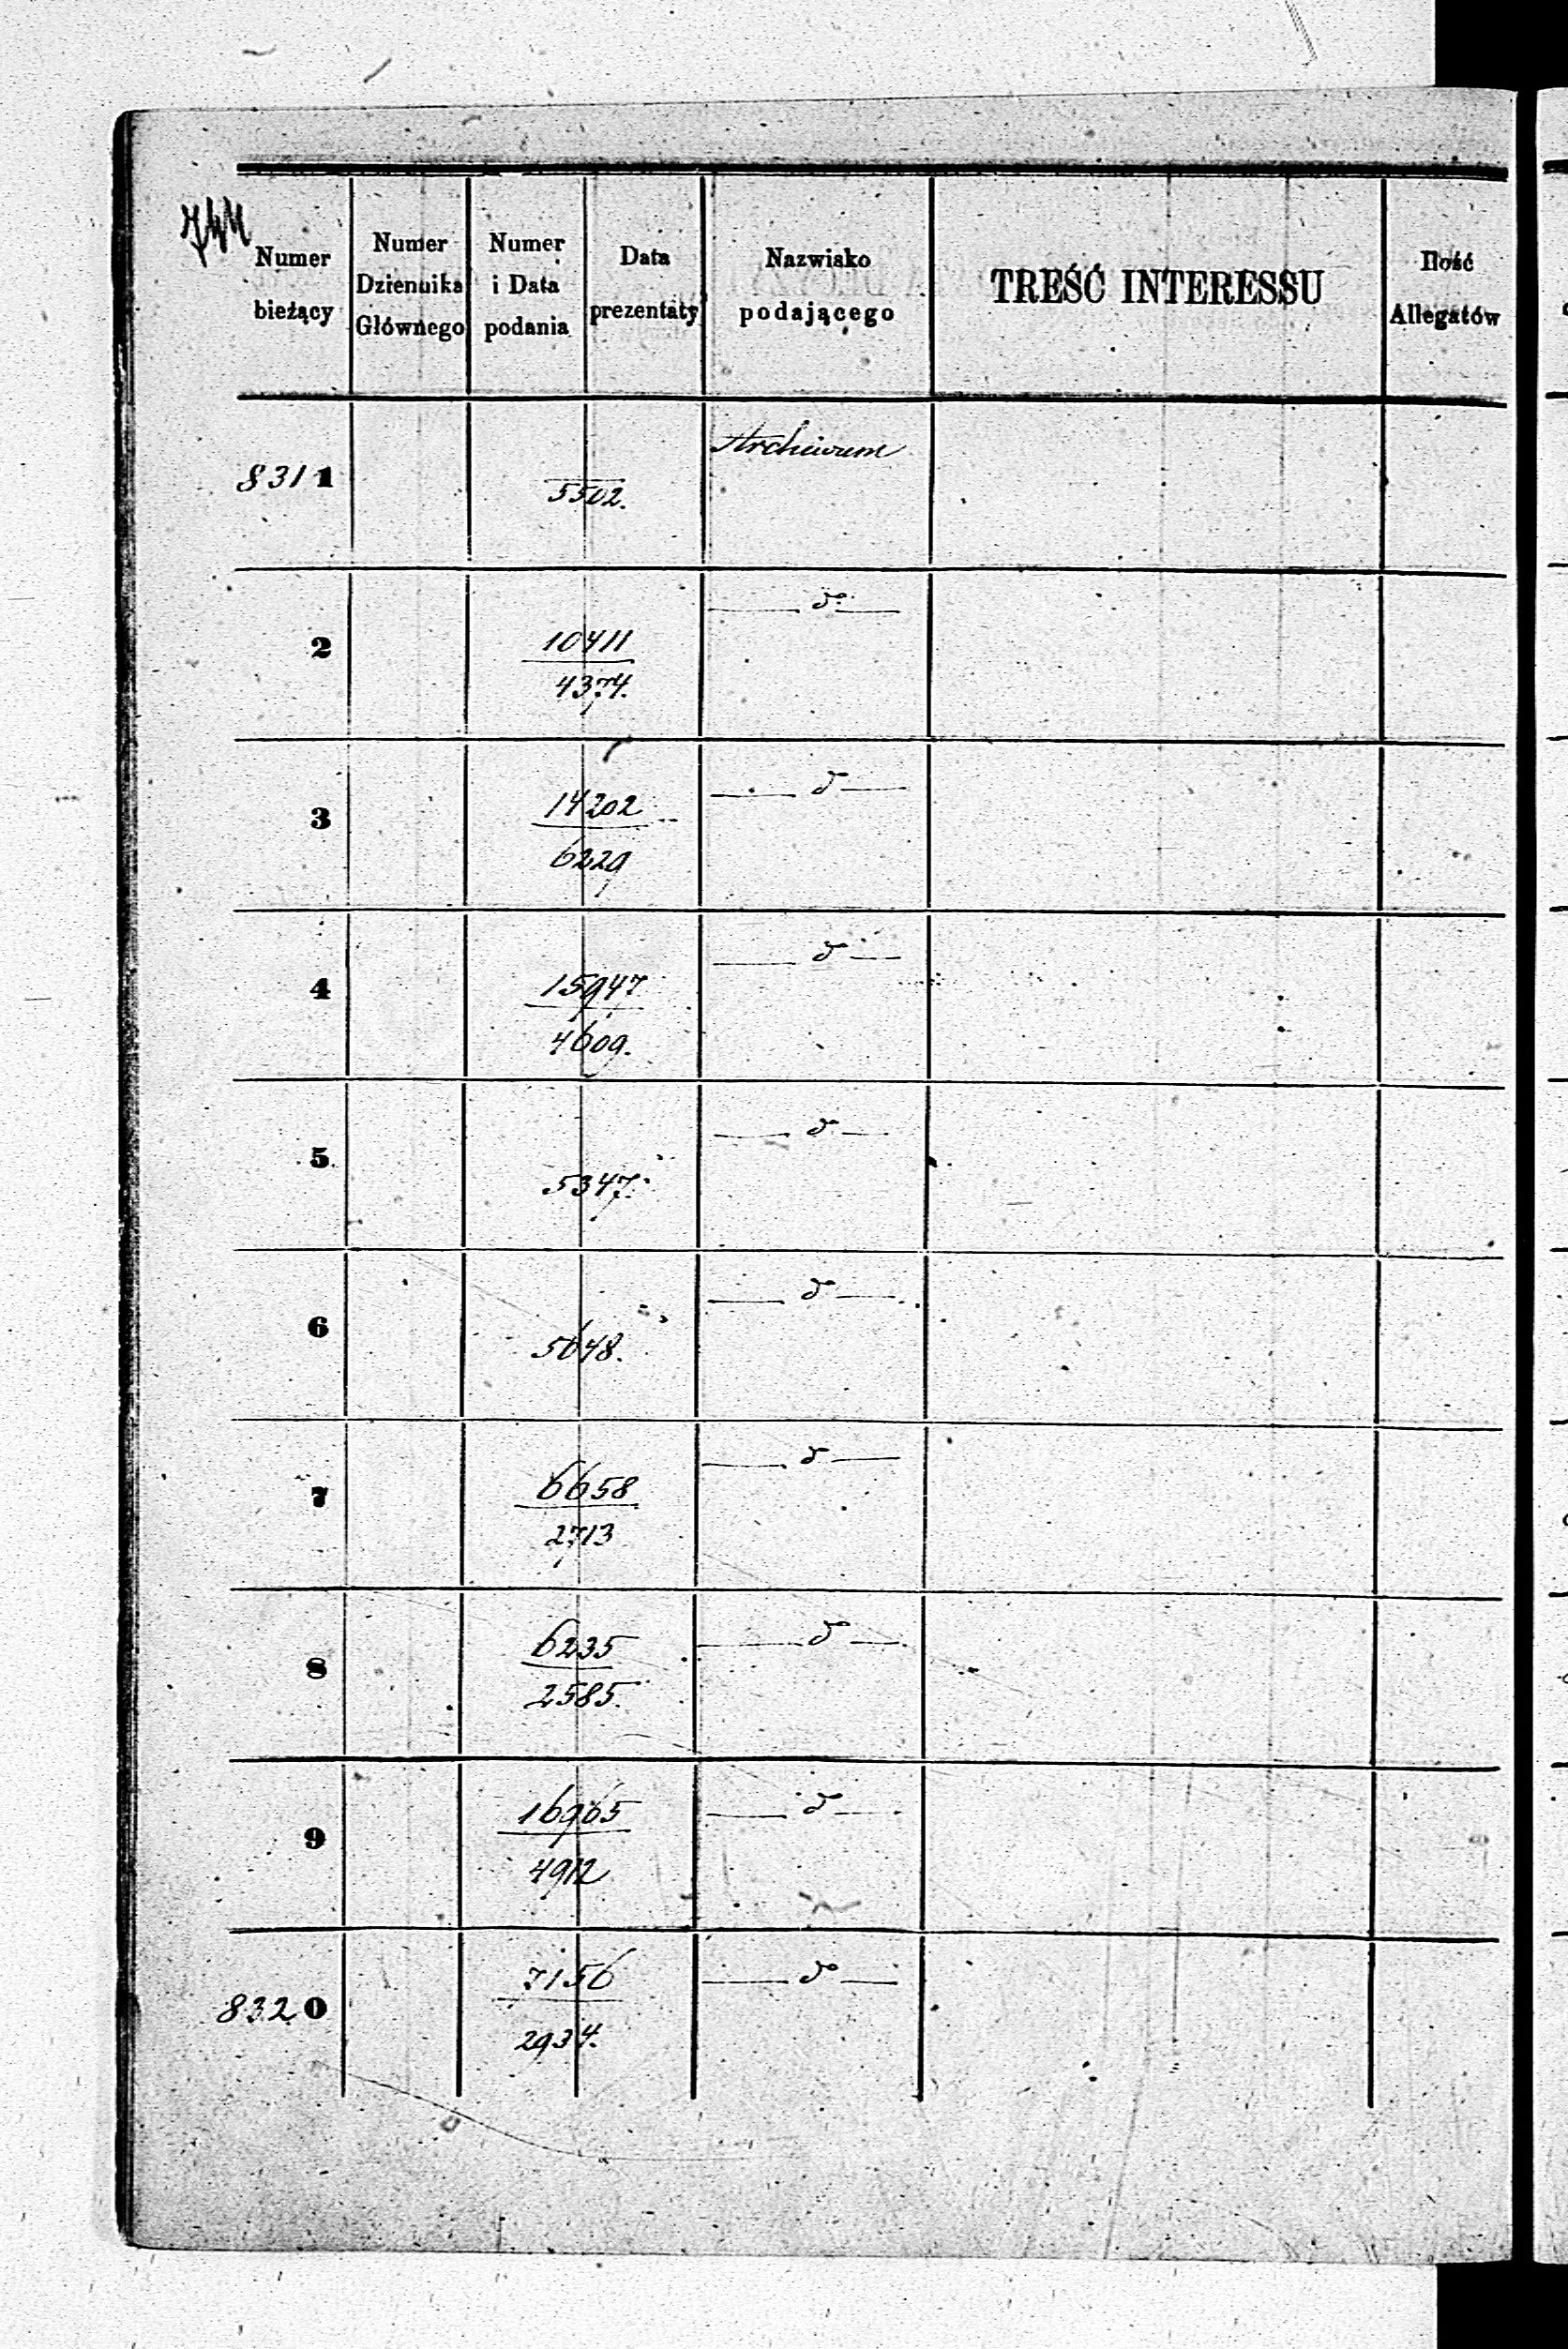 Numer bieżący
Numer Dziennika Głównego
Numer i Data podania
Data prezentaty
Nazwisko podającego
TREŚĆ INTERESSU
Ilość Allegatów
8311
5502.
Archiwum
2
10411
4374.
d°
3
14202
6229
d°
4
15947
4609.
d°
5
5347.
d°
6
5648.
d°
7
6658
2713
d°
8
6235
2585.
d°
9
16965
4912
d°
8320
7156
2934.
d°